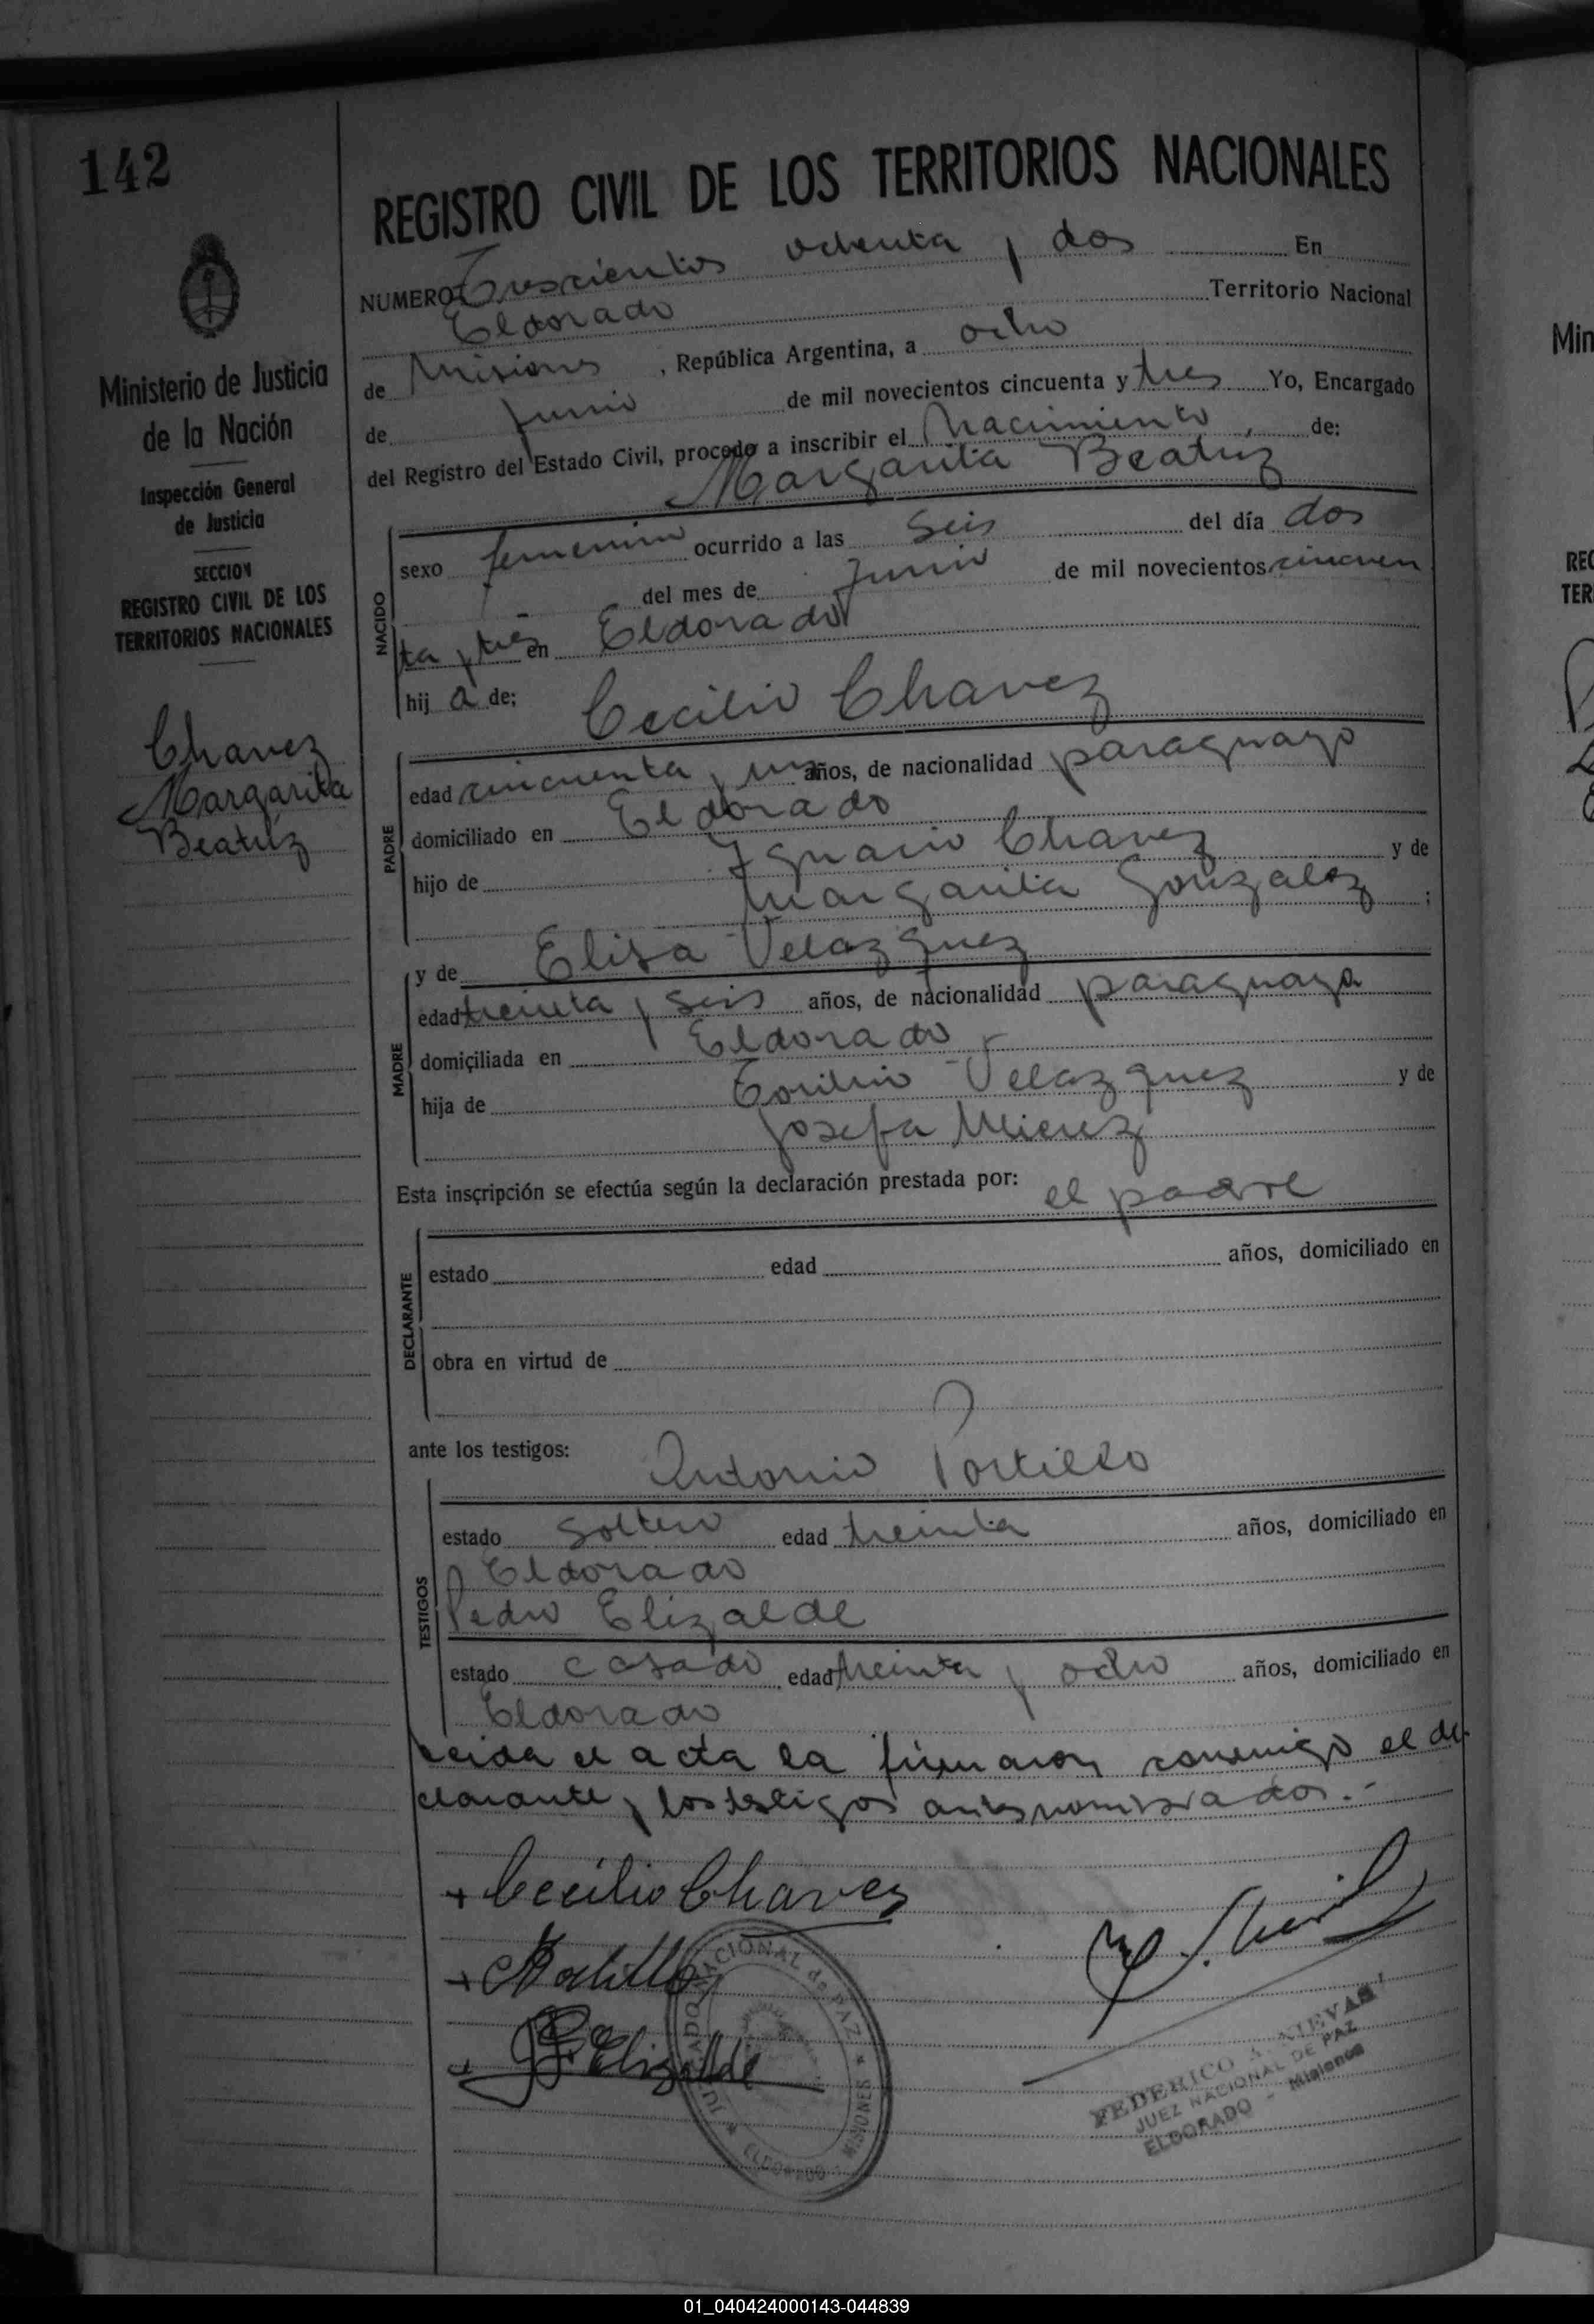 142
REGISTRO CIVIL DE LOS TERRITORIOS NACIONALES
Ministerio de Justicia
de la Nación
Inspección General
de Justicia
SECCION
REGISTRO CIVIL DE LOS
TERRITORIOS NACIONALES
Chavez
Margarita
Beatriz
NUMERO Trescientos ochenta y dos En
Eldorado Territorio Nacional
de Misiones, República Argentina, a ocho
de Junio de mil novecientos cincuenta y tres Yo, Encargado
del Registro del Estado Civil, procedo a inscribir el Nacimiento, de:
Margarita Beatriz
NACIDO
sexo femenino ocurrido a las seis del día dos
del mes de Junio de mil novecientos cincuen
ta y tres en Eldorado
hij a de: Cecilio Chavez
PADRE
edad cincuenta y un años, de nacionalidad paraguayo
domiciliado en Eldorado
hijo de Ignacio Chavez y de
Margarita Gonzalez ;
MADRE
y de Elisa Velazquez
edad treinta y seis años, de nacionalidad paraguaya
domiciliada en Eldorado
hija de Velazquez y de
Josefa Mierez
Esta inscripción se efectúa según la declaración prestada por: el padre
DECLARANTE
estado edad años, domiciliado en
obra en virtud de
ante los testigos: Antonio Portillo
TESTIGOS
estado soltero edad treinta años, domiciliado en
Eldorado
Pedro Elizalde
estado casado edad treinta y ocho años, domiciliado en
Eldorado
Leida el acta la firmaron conmigo el de
clarante y los testigos antes nombrados.-
+ Cecilio Chavez
+ APortillo
P. Elizalde
JUZGADO NACIONAL de PAZ
ELDORADO MISIONES
FEDERICO A. NIEVAS
JUEZ NACIONAL DE PAZ
ELDORADO - Misiones
Min
REG
TER
01_040424000143-044839